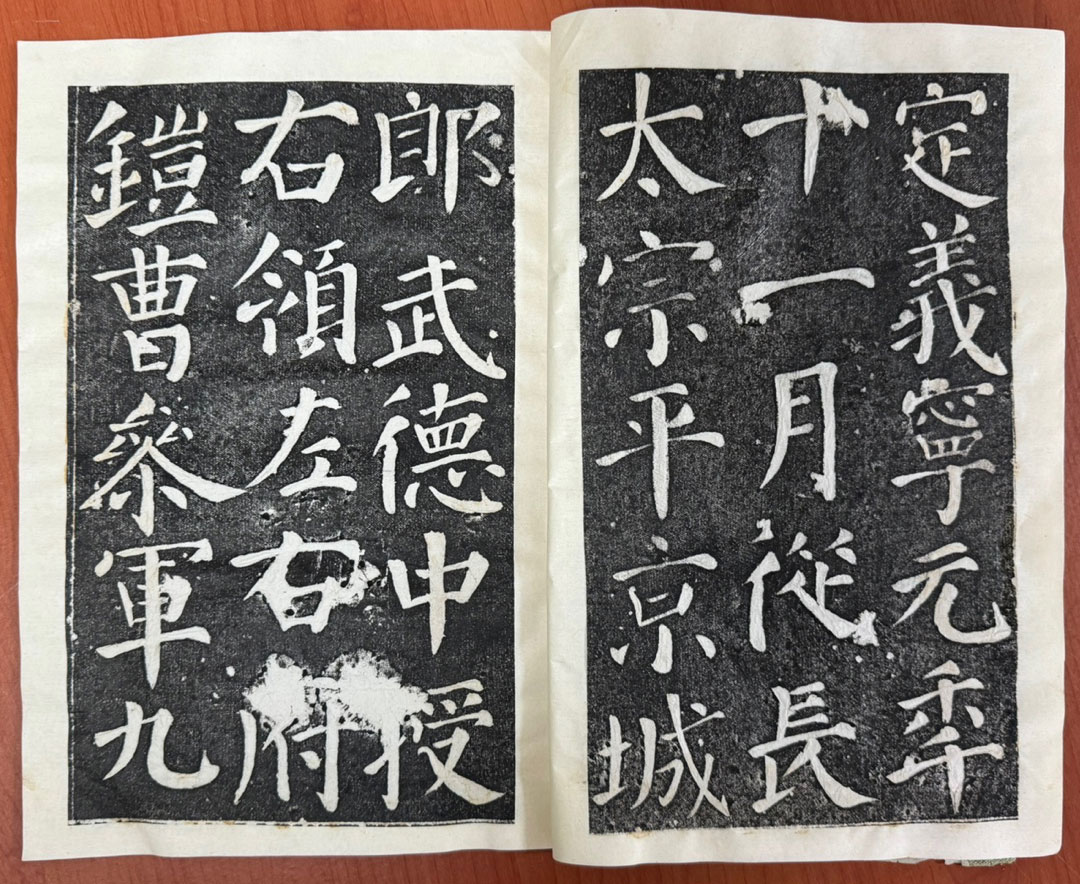 定義寧元年
十一月從長
太宗平京城
郎武德中授
右領左右府
鎧曹參軍九